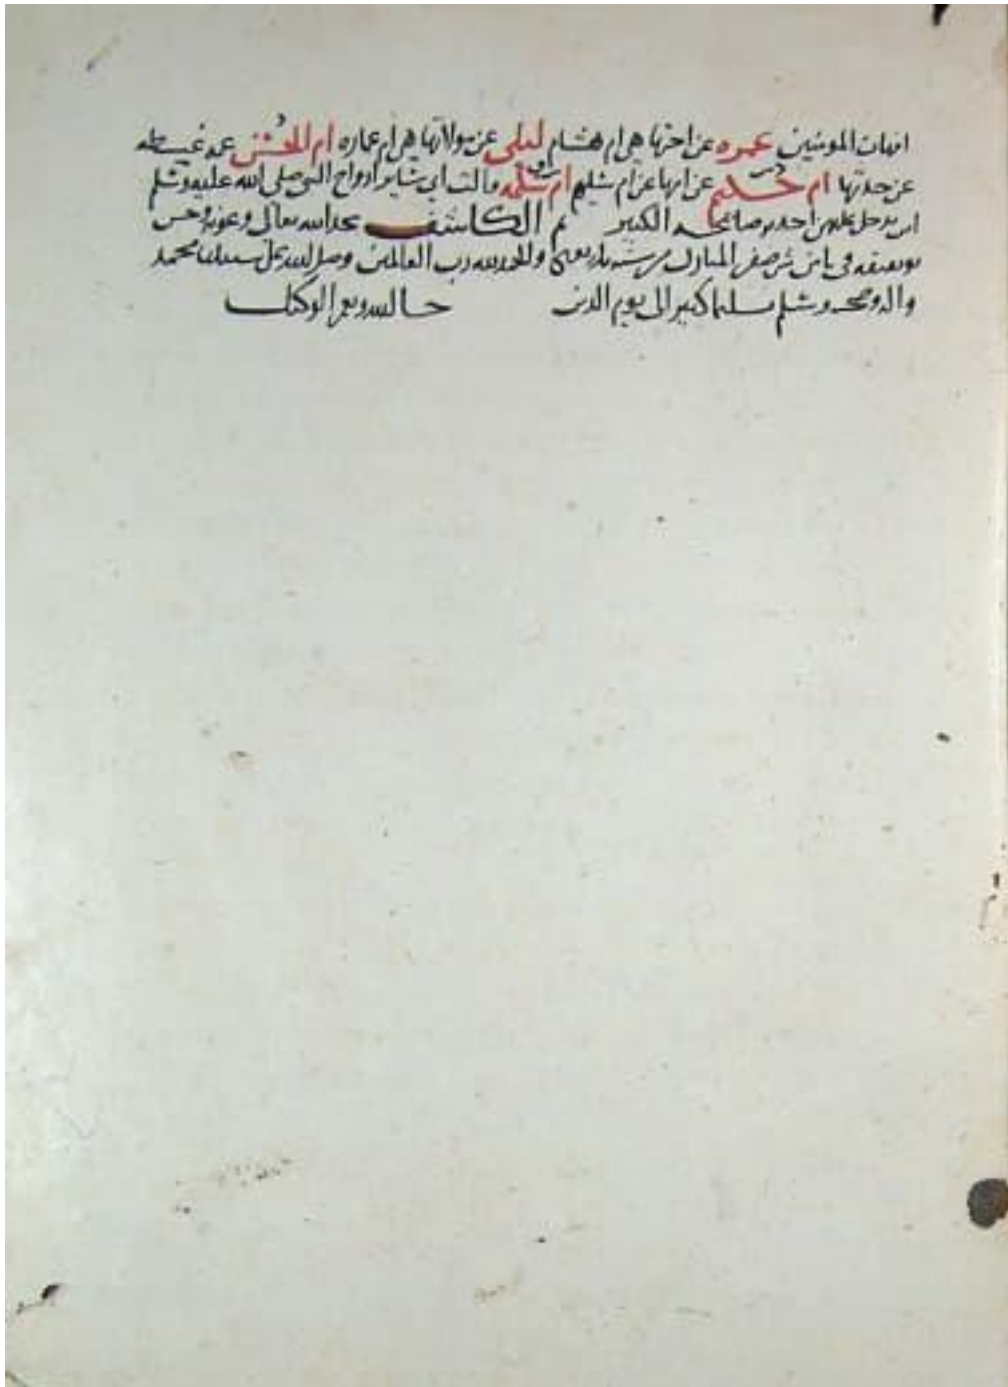 امهات المومنين عمره عن اختها هي ام هشام ليلى عن مولاتها هي ام عماره ام الحسن عمه غبطه
عن جدتها ام حكيم عن امها عن ام سليم ام سلمه قالت ابى سائر ازواج النبي صلى الله عليه وسلم
ان يدخل عليهن احد برضاعه الكبير تم الكاشف بحمد الله تعالى وعونه وحسن
توفيقه في ثامن شهر صفر المبارك من سنه والحمد لله رب العالمين وصلى الله على سيدنا محمد
واله وصحبه وسلم تسليما كثيرا الى يوم الدين حسبنا الله ونعم الوكيل